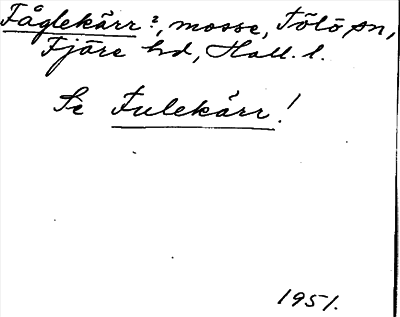 Fåglekärr?, mosse, Tölö sn,
Fjäre hd, Hall. l.
Se Fulekärr!
1951.